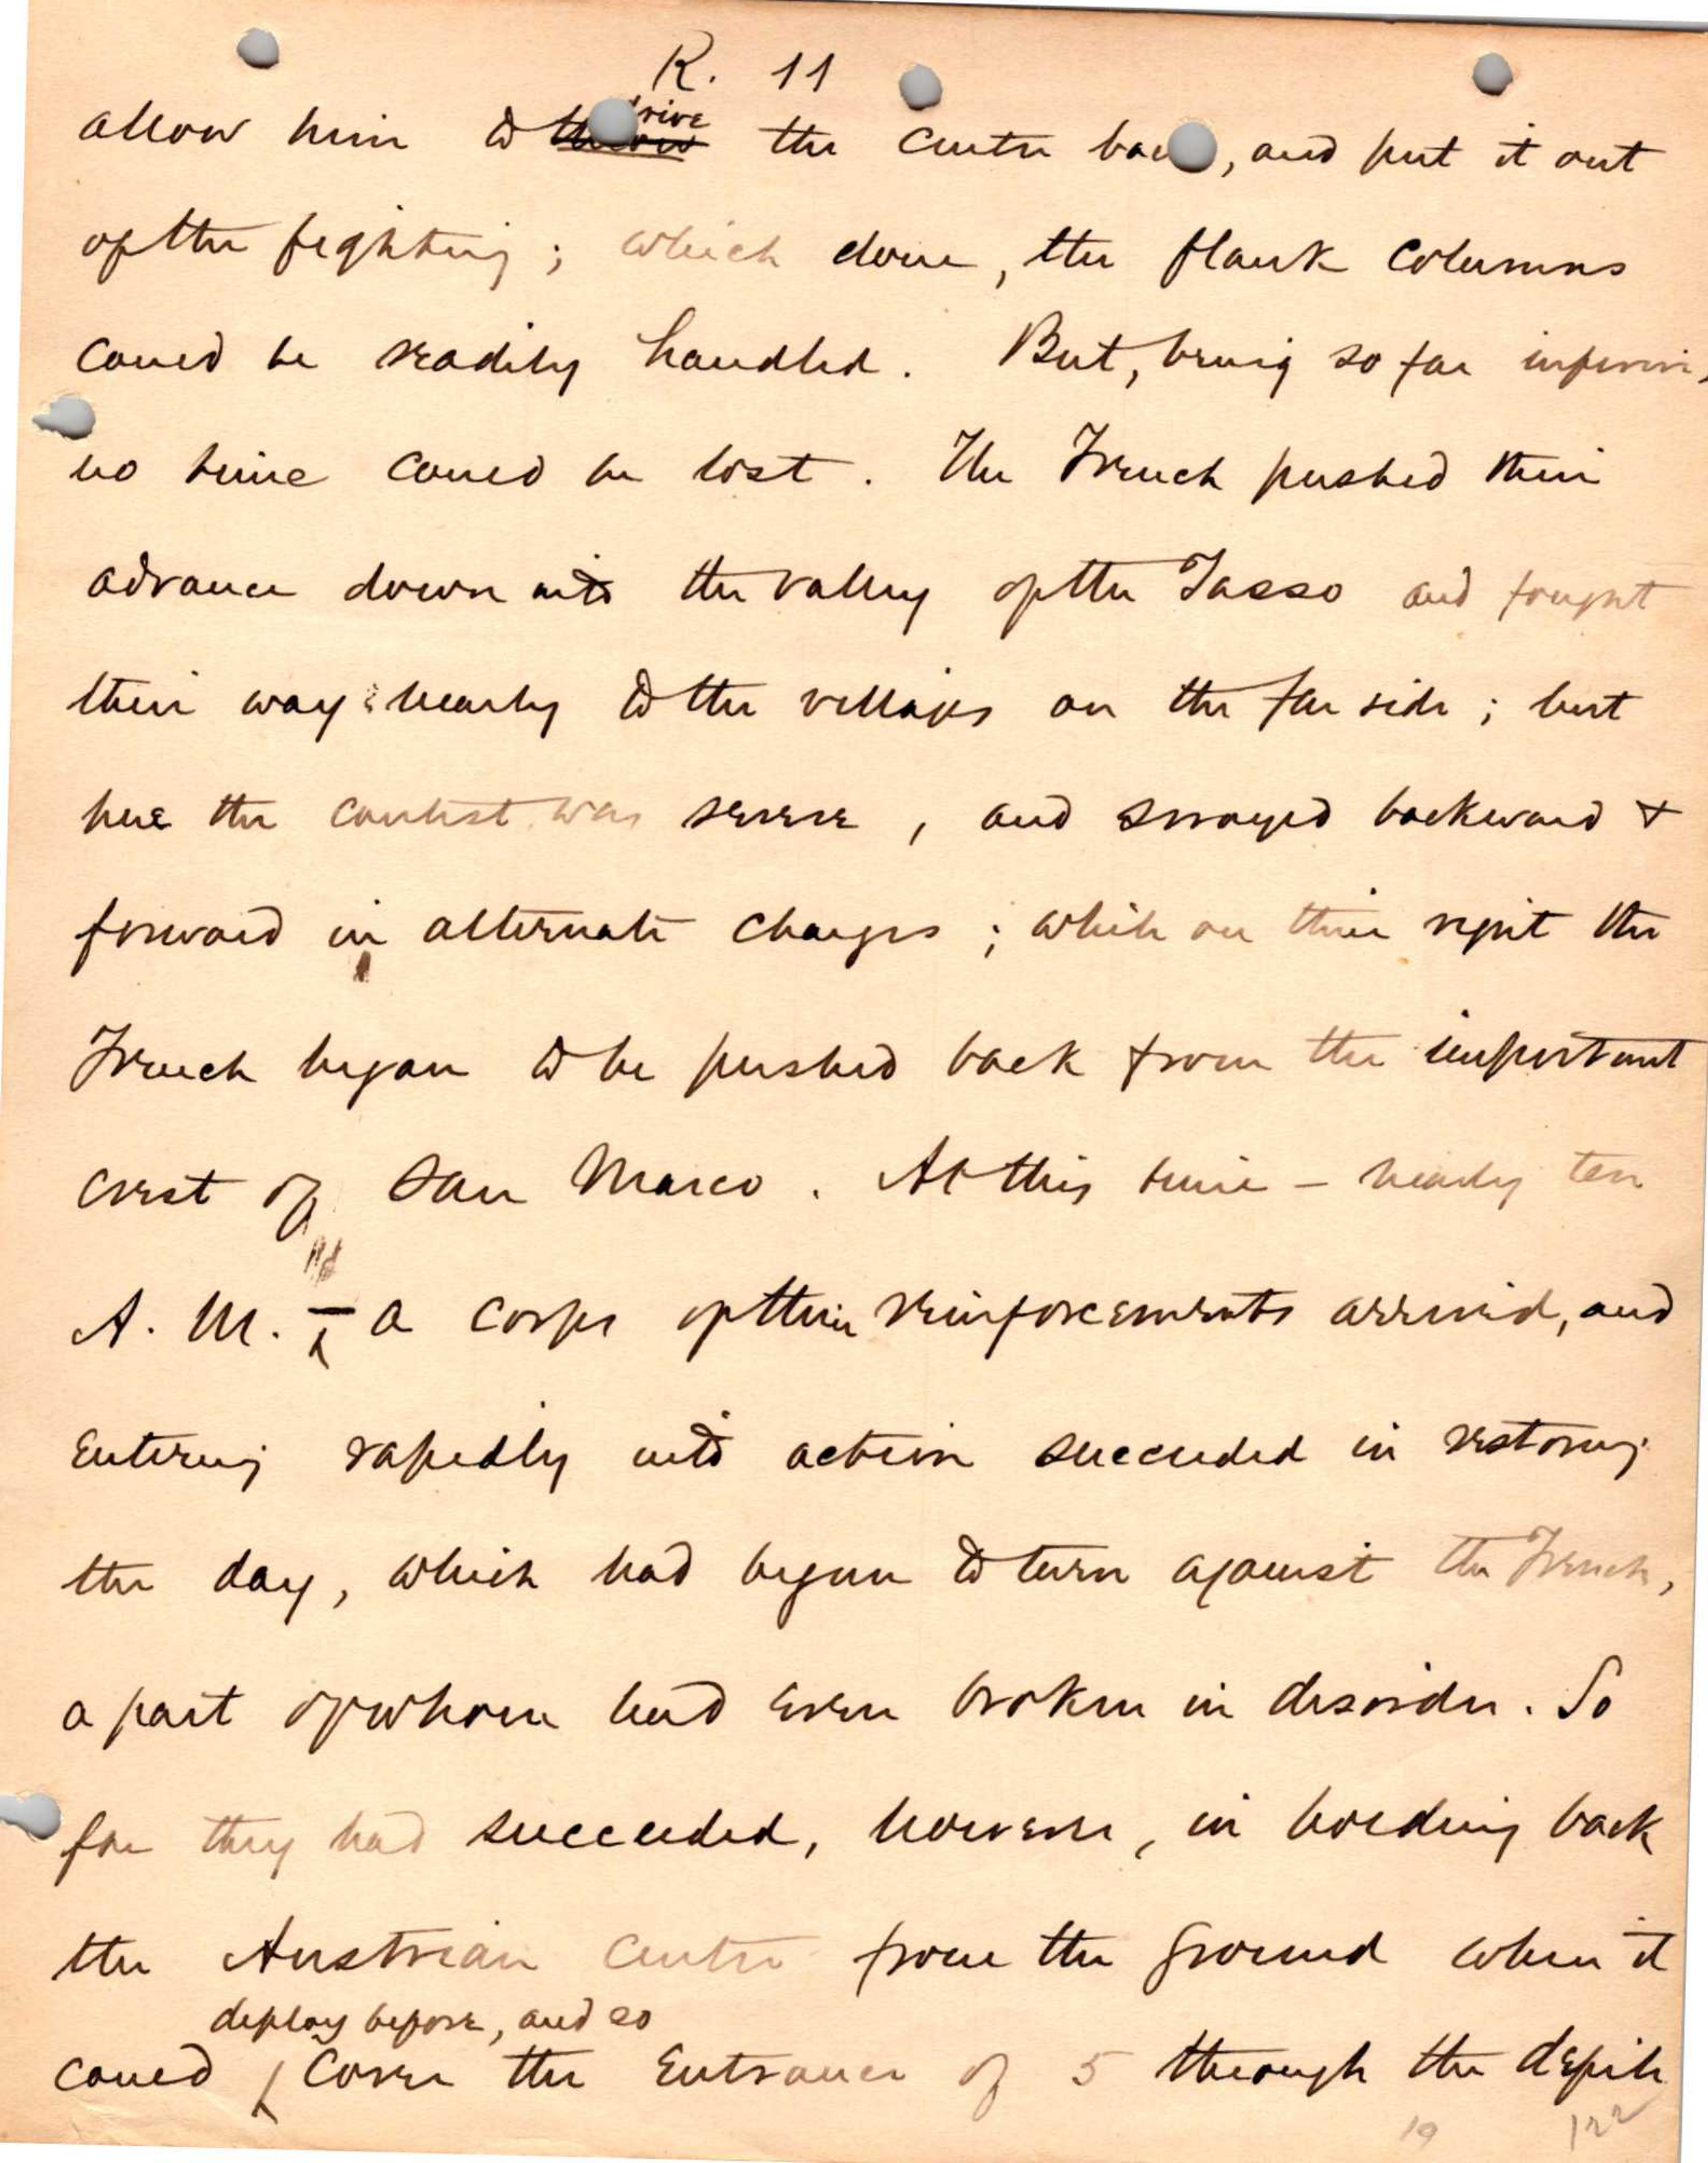 R. 11
drive
allow him to throw the centre back, and put it out
of the fighting; which done, the flank columns
could be readily handled. But, being so far inferior,
no time could be lost. The French pushed their
advance down into the valley of the Tasso and fought
their way nearly to the villages on the far side; but
here the contest was severe, and swayed backward &
forward in alternate charges; while on their right the
French began to be pushed back from the important
crest of San Marco. At this time – nearly ten
A. M. – a corps of their reinforcements arrived, and
entering rapidly into action succeeded in restoring
the day, which had begun to turn against the French,
a part of whom had even broken in disorder. So
far they had succeeded, however, in holding back
the Austrian centre from the ground when it
deploy before, and so
could cover the entrance of 5 through the defile
19 122